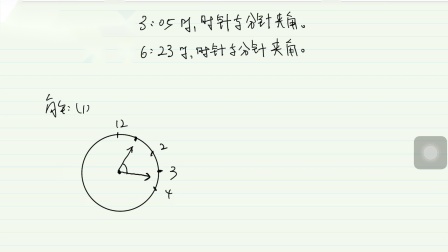 3:05时,时针与分针夹角。
6:23时,时针与分针夹角。
解:(1)
12
2
3
4